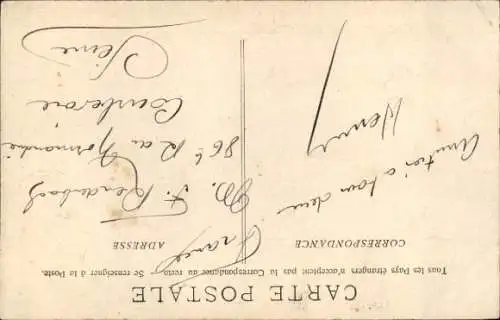 CARTE POSTALE
Tous les Pays étrangers n'acceptent pas la Correspondance au recto - Se renseigner à la Poste.
CORRESPONDANCE
ADRESSE
France
M. F.
86 R de Normandie
Courbevoie
Seine
Amitiés à tous deux